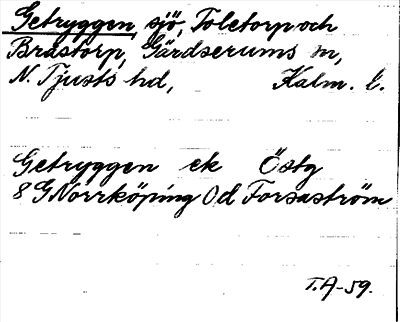 Getryggen, sjö, Toletorp och
Bråstorp, Gärdserums sn,
N. Tjusts hd, Kalm. l.
Getryggen ek Östg
8 G Norrköping Od Forsaström
T.A-59.